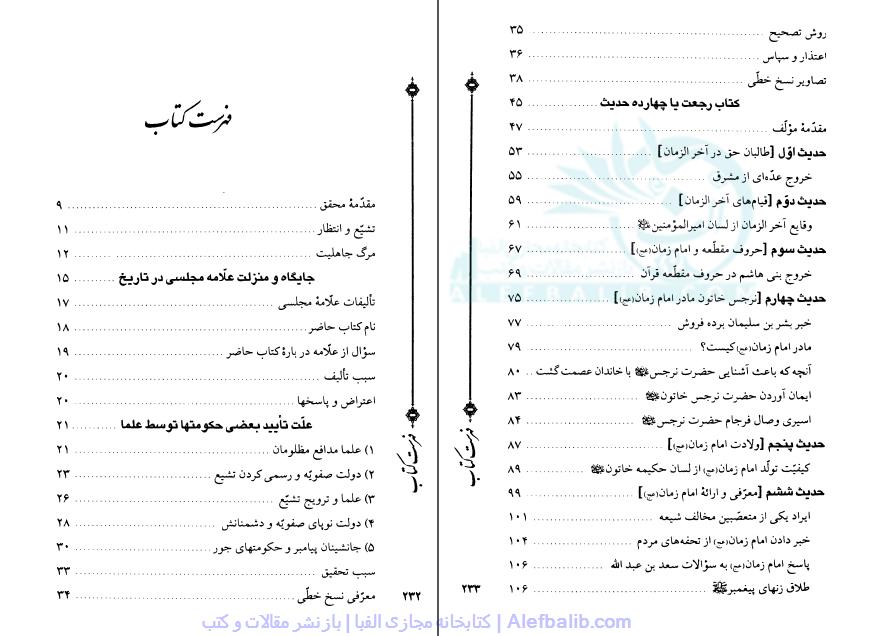 فهرست کتاب
مقدّمهٔ محقق ۹
تشیّع و انتظار ۱۱
مرگ جاهلیت ۱۲
جایگاه و منزلت علّامه مجلسی در تاریخ ۱۵
تألیفات علّامهٔ مجلسی ۱۷
نام کتاب حاضر ۱۸
سؤال از علّامه در بارهٔ کتاب حاضر ۱۹
سبب تألیف ۲۰
اعتراض و پاسخها ۲۰
علّت تأیید بعضی حکومتها توسط علما ۲۱
۱) علما مدافع مظلومان ۲۱
۲) دولت صفویّه و رسمی کردن تشیع ۲۳
۳) علما و ترویج تشیّع ۲۶
۴) دولت نوپای صفویّه و دشمنانش ۲۸
۵) جانشینان پیامبر و حکومتهای جور ۳۰
سبب تحقیق ۳۳
معرّفی نسخ خطّی ۳۴
فهرست کتاب
۲۳۲
روش تصحیح ۳۵
اعتذار و سپاس ۳۶
تصاویر نسخ خطّی ۳۸
کتاب رجعت یا چهارده حدیث ۴۵
مقدّمهٔ مؤلّف ۴۷
حدیث اوّل [طالبان حق در آخر الزمان] ۵۳
خروج عدّه‌ای از مشرق ۵۵
حدیث دوّم [قیام‌های آخر الزمان] ۵۹
وقایع آخر الزمان از لسان امیرالمؤمنین ۶۱
حدیث سوم [حروف مقطّعه و امام زمان(عج)] ۶۷
خروج بنی هاشم در حروف مقطّعه قرآن ۶۹
حدیث چهارم [نرجس خاتون مادر امام زمان(عج)] ۷۵
خبر بشر بن سلیمان برده فروش ۷۷
مادر امام زمان(عج) کیست؟ ۷۹
آنچه که باعث آشنایی حضرت نرجس با خاندان عصمت گشت ۸۰
ایمان آوردن حضرت نرجس خاتون ۸۳
اسیری وصال فرجام حضرت نرجس ۸۴
حدیث پنجم [ولادت امام زمان(عج)] ۸۷
کیفیّت تولّد امام زمان(عج) از لسان حکیمه خاتون ۸۹
حدیث ششم [معرّفی و ارائهٔ امام زمان(عج)] ۹۹
ایراد یکی از متعصّبین مخالف شیعه ۱۰۱
خبر دادن امام زمان(عج) از تحفه‌های مردم ۱۰۴
پاسخ امام زمان(عج) به سؤالات سعد بن عبد الله ۱۰۶
طلاق زنهای پیغمبر ۱۰۶
فهرست کتاب
۲۳۳
ALEFBALIB.COM
کتابخانه مجازی الفبا | بازنشر مقالات و کتب | Alefbalib.com